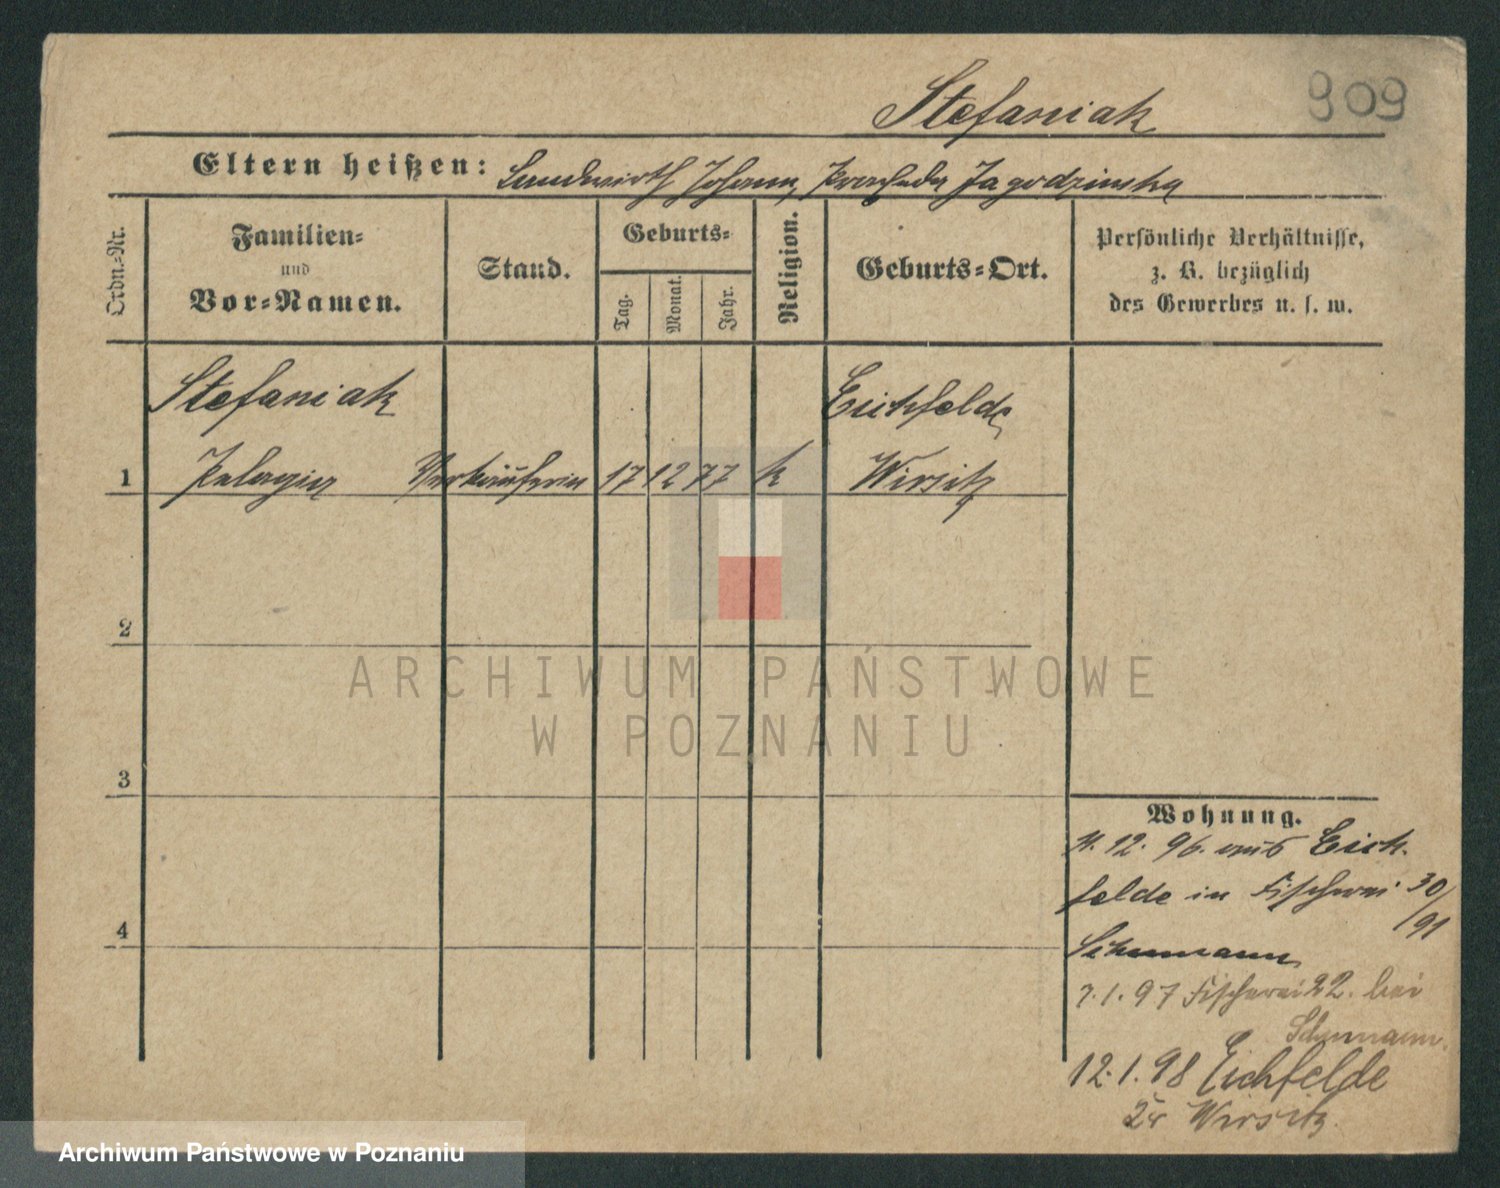 Stefaniak
909
Eltern heißen: Landwirth Johann, Praxeda Jagodzinska
Ordn.-Nr.
Familien-
und
Vor-Namen.
Stand.
Geburts-
Tag.
Monat.
Jahr.
Religion.
Geburts-Ort.
Persönliche Verhältnisse,
z. B. bezüglich
des Gewerbes u. s. w.
Stefaniak
Eichfelde
1 Pelagia Verkäuferin 17 12 77 k Wirsitz
2
3
4
Wohnung.
11. 12. 96. aus Eich-
felde in Fischerei 30/
/91
Schumann
7. 1. 97 Fischerei 22. bei
Schumann.
12. 1. 98 Eichfelde
Kr Wirsitz.
ARCHIWUM PAŃSTWOWE
W POZNANIU
Archiwum Państwowe w Poznaniu